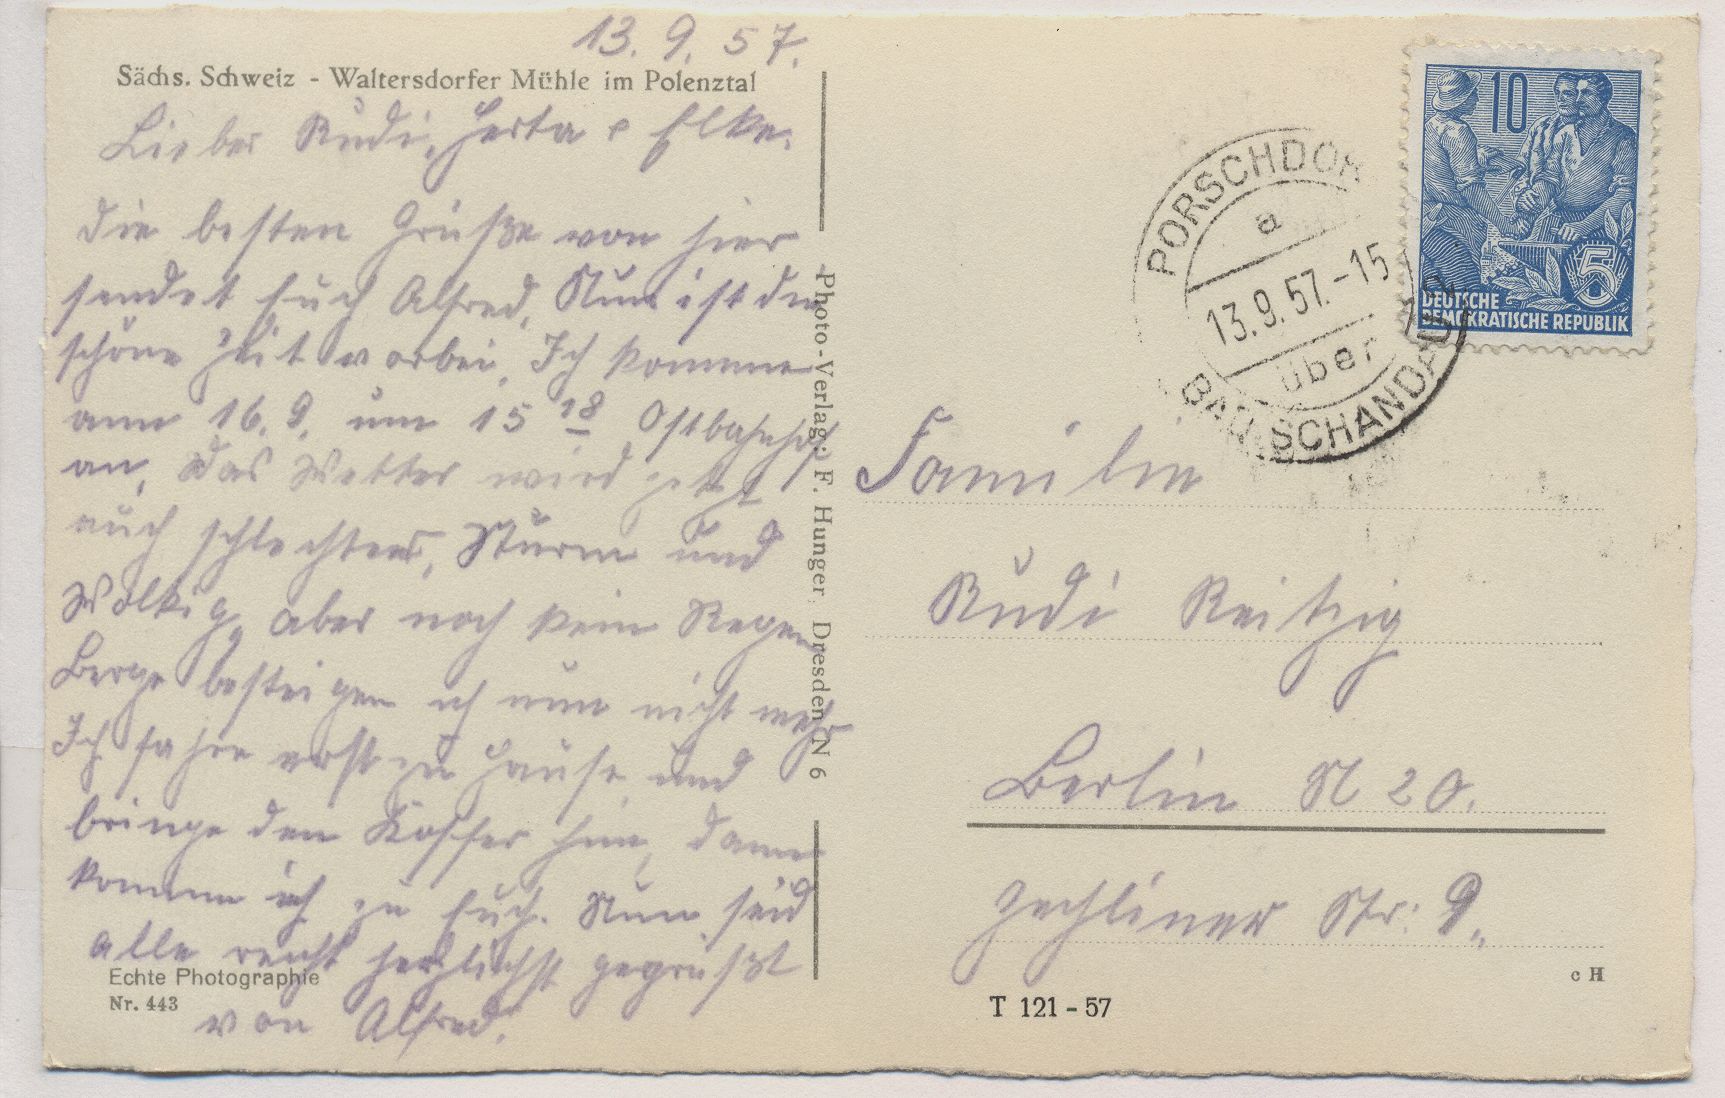 13. 9. 57.
Sächs. Schweiz - Waltersdorfer Mühle im Polenztal
Lieber Rudi, Herta & Elke.
Die besten Grüße von hier
sendet Euch Alfred, Nun ist die
schöne Zeit vorbei, Ich komme
am 16. 9. um 15 18 Ostbahnhof
an, Das Wetter wird jetzt
auch schlechter, Sturm und
Wolkig, aber noch kein Regen
Berge besteigen ich nun nicht mehr
Ich fahre erst zu Hause und
bringe den Koffer hin, dann
komme ich zu Euch. Nun seid
alle recht herzlichst gegrüßt
von Alfred.
Echte Photographie
Nr. 443
Photo-Verlag: F. Hunger, Dresden N 6
PORSCHDORF
a
13.9.57.-15
über
BAD SCHANDAU
10
5
DEUTSCHE
DEMOKRATISCHE REPUBLIK
Familie
Rudi Reitzig
Berlin N 20.
Zechliner Str: 9.
c H
T 121 - 57